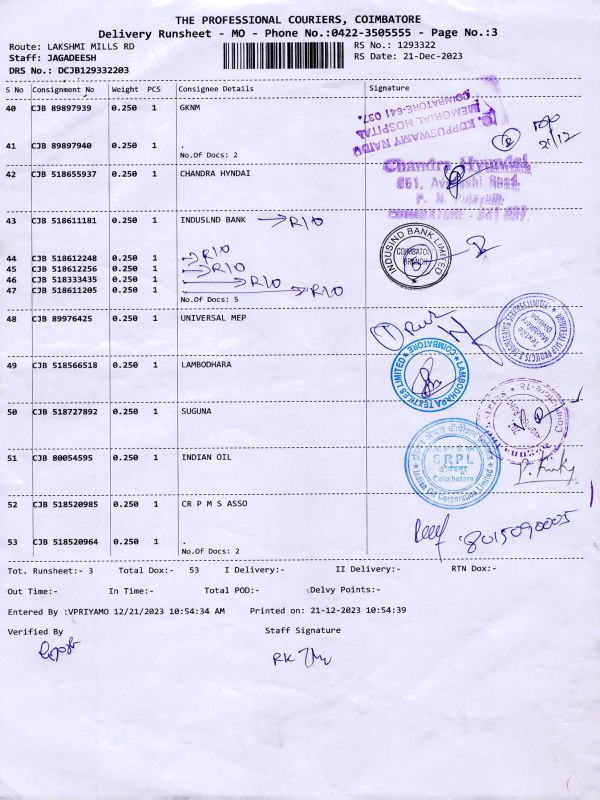 THE PROFESSIONAL COURIERS, COIMBATORE
Delivery Runsheet - MO - Phone No.:0422-3505555 - Page No.:3
Route: LAKSHMI MILLS RD
RS No.: 1293322
Staff: JAGADEESH
RS Date: 21-Dec-2023
DRS No.: DCJB129332203
S No Consignment No Weight PCS Consignee Details Signature
40 CJB 89897939 0.250 1 GKNM
G. KUPPUSWAMY NAIDU
MEMORIAL HOSPITAL
COIMBATORE-641 037.
21/12
41 CJB 89897940 0.250 1 .
No.Of Docs: 2
42 CJB 518655937 0.250 1 CHANDRA HYNDAI
Chandra Hyundai
COIMBATORE
43 CJB 518611181 0.250 1 INDUSLND BANK → R/O
INDUSIND BANK LIMITED
COIMBATORE BRANCH
44 CJB 518612248 0.250 1 → R/O
45 CJB 518612256 0.250 1 → R/O
46 CJB 518333435 0.250 1 → R/O
47 CJB 518611205 0.250 1 → R/O
No.Of Docs: 5
48 CJB 89976425 0.250 1 UNIVERSAL MEP
UNIVERSAL MEP PROJECTS & ENGINEERING SERVICES LIMITED
Textile Machinery Division
49 CJB 518566518 0.250 1 LAMBODHARA
LAMBODHARA TEXTILES LIMITED
COIMBATORE
50 CJB 518727892 0.250 1 SUGUNA
Coimbatore-18
51 CJB 80054595 0.250 1 INDIAN OIL
SRPL
कोयंबतूर
Coimbatore
Indian Oil Corporation Limited
52 CJB 518520985 0.250 1 CR P M S ASSO
8015090005
53 CJB 518520964 0.250 1 .
No.Of Docs: 2
Tot. Runsheet:- 3 Total Dox:- 53 I Delivery:- II Delivery:- RTN Dox:-
Out Time:- In Time:- Total POD:- Delvy Points:-
Entered By :VPRIYAMO 12/21/2023 10:54:34 AM Printed on: 21-12-2023 10:54:39
Verified By Staff Signature